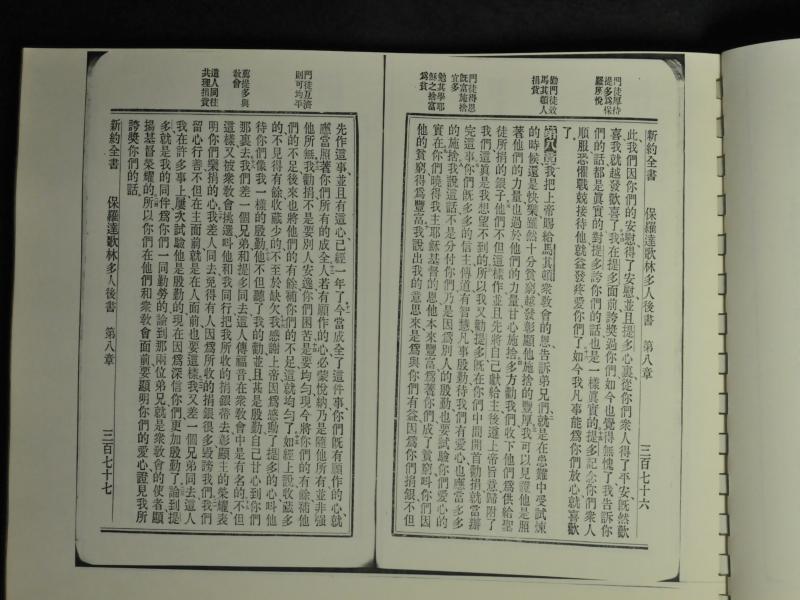 新約全書　保羅達歌林多人後書　第八章　三百七十六
門徒厚待
提多爲保
羅所悅
此我們因你們的安慰得了安慰並且提多心裏從你們衆人得了平安既然歡
喜我就越發歡喜了我在提多面前誇獎過你們如今也覺得無愧了我告訴你
們的話都是眞實的對提多誇你們的話也是一樣眞實的提多記念你們衆人
順服恐懼戰兢接待他就益發疼愛你們了如今我凡事能爲你們放心就喜歡
了
勸門徒效
馬其頓人
捐貲
第八章我把上帝賜給馬其頓衆教會的恩告訴弟兄們就是在患難中受試煉
的時候還是快樂雖然十分貧窮越發彰顯他施捨的豐厚我可以見證他是照
著他們的力量也過於他們的力量甘心施捨多方勸我們收下他們爲供給聖
徒所捐的銀子他們不但這樣作並且先將自己獻給主後遵上帝旨意歸附了
我們這眞是我想望不到的所以我又勸提多既在你們中間開首勸捐就當辦
門徒得恩
既富施捨
宜多
完這事你們既多多的信主傳道有智慧凡事殷勤待我們有愛心也應當多多
的施捨我說這話不是分付你們乃是因爲別人的殷勤也要試驗你們愛心的
勉其學耶
穌之捨富
爲貧
實在你們曉得我主耶穌基督的恩他本來豐富爲著你們成了貧窮叫你們因
他的貧窮得爲豐富我說出我的意思來是爲與你們有益因爲你們捐銀不但
先作這事並且有這心已經一年了今當成全了這件事你們既有願作的心就
應當照著你們所有的成全人若有願作的心必蒙悅納乃是隨他所有並非強
門徒互濟
則可均平
他所無我勸捐不是要別人安逸你們困苦是要均勻現今將你們的有餘補他
們的不足後來也將他們的有餘補你們的不足這就均勻了如經上說收蔵多
的不見得有餘收蔵少的不至於缺欠我感謝上帝因爲感動了提多的心叫他
待你們像我一樣的殷勤他不但聽了我的勸並且甚是殷勤自己甘心到你們
薦提多與
教會
那裏去我們差一個兄弟和提多同去這人傳福音在衆教會中是有名的不但
這樣又被衆教會挑選叫他和我同行把我所收的捐銀帶去彰顯主的榮耀表
遣人同往
共理捐貲
明你們樂捐的心我差人同去免得有人因爲所收的捐銀很多毀謗我們我們
留心行善不但在主面前就是在人面前也要這樣我又差一個兄弟同去這人
我在許多事上屢次試驗他是殷勤的現在因爲深信你們更加殷勤了論到提
多就是我的同伴爲你們一同勤勞的論到那兩位弟兄就是衆教會的使者顯
揚基督榮耀的所以你們在他們和衆教會面前要顯明你們的愛心證見我所
誇獎你們的話
新約全書　保羅達歌林多人後書　第八章　三百七十七